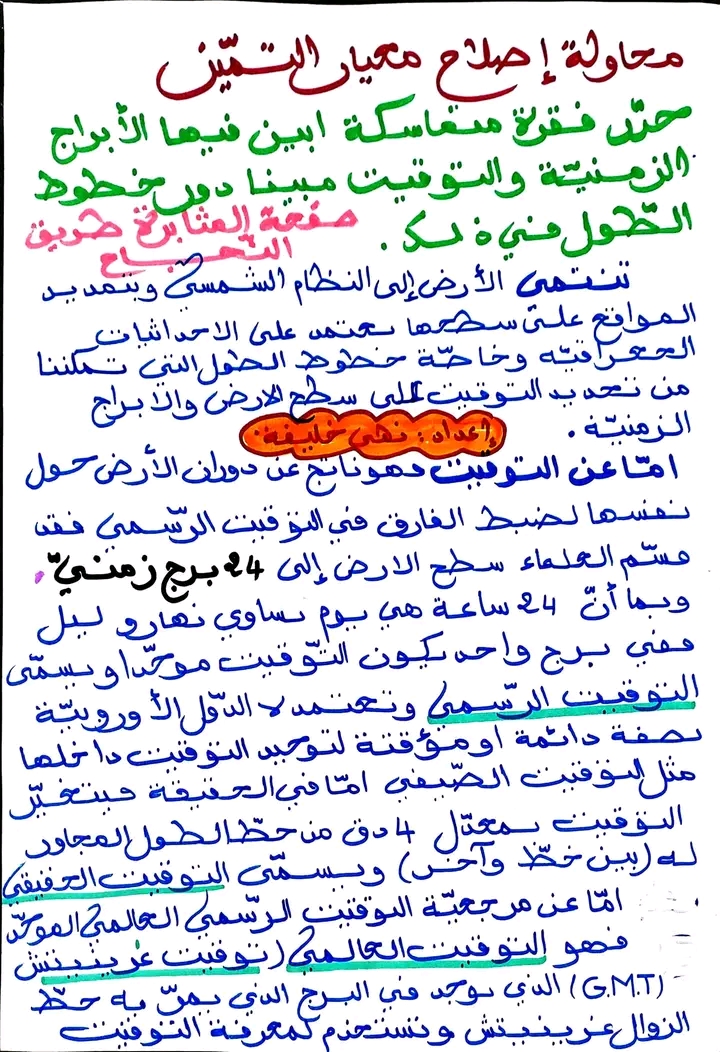 محاولة إصلاح معيار التميّز
حرّر فقرة متماسكة ابين فيها الأبراج
الزمنيّة والتوقيت مبينا دور خطوط
الطّول في ذلك .
صفحة المثابرة طريق
النّجاح
تنتمي الأرض إلى النظام الشمسي وبتحديد
المواقع على سطحها نعتمد على الاحداثيات
الجغرافيّة وخاصّة خطوط الطول التي تمكننا
من تحديد التوقيت على سطح الارض والابراج
الزمنيّة .
إعداد : نهى خليفة .
امّا عن التوقيت فهو ناتج عن دوران الأرض حول
نفسها لضبط الفارق في التوقيت الرّسمي فقد
قسّم العلماء سطح الارض إلى 24 برج زمنيّ .
وبما أنّ 24 ساعة هي يوم يساوي نهار و ليل
ففي برج واحد يكون التّوقيت موحّدا ويسمّى
التوقيت الرّسمي وتعتمده الدّول الأوروبيّة
بصفة دائمة او مؤقتة لتوحيد التوقيت داخلها
مثل التوقيت الصّيفي امّا في الحقيقة فيتغيّر
التوقيت بمعدّل 4 دق من خطّ الطول المجاور
له (بين خطّ وآخر) ويسمّى التوقيت الحقيقي
امّا عن مرجعيّة التوقيت الرّسمي العالمي الموحّد
فهو التوقيت العالمي (توقيت غرينيتش
(G.M.T) الذي يوجد في البرج الذي يمرّ به خطّ
الزوال غرينيتش ونستخدم لمعرفة التوقيت